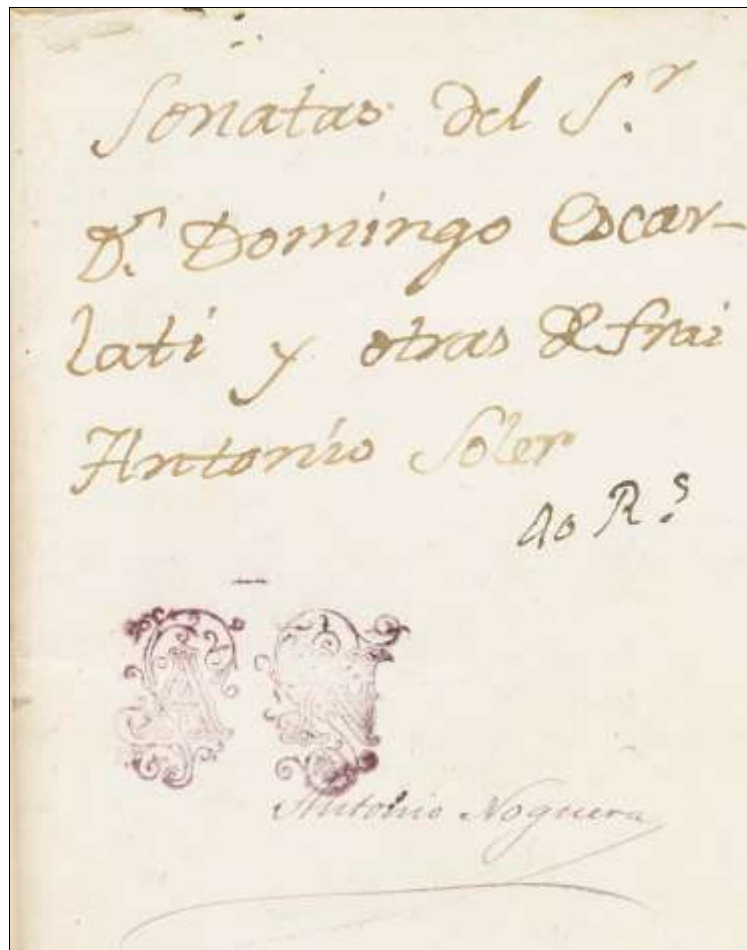 Sonatas del S.r
D.n Domingo Escar-
lati y otras de frai
Antonio Soler
40 R.s
A N
Antonio Noguera